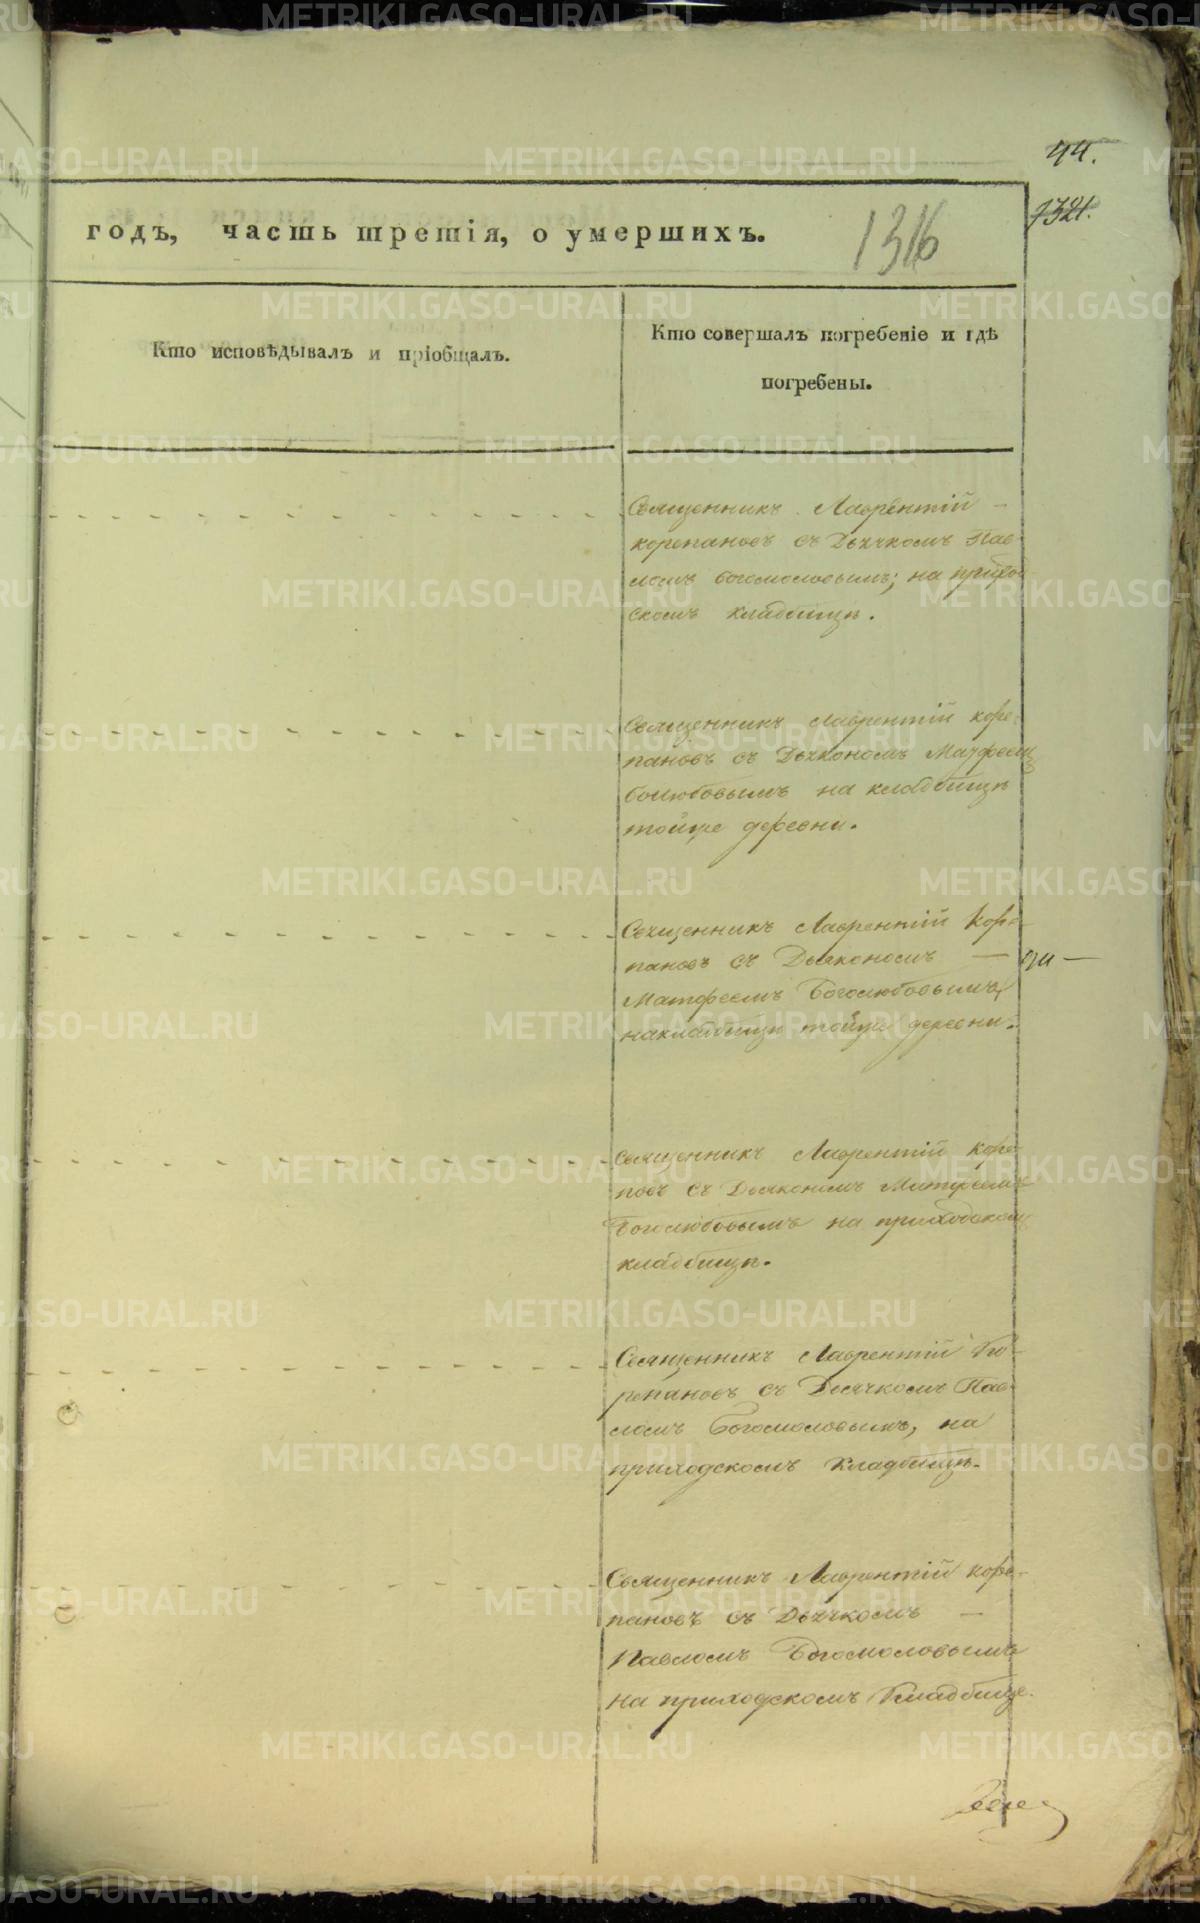 44.
7321.
годъ, часть третія, о умершихъ.
1316
Кто исповѣдывалъ и пріобщалъ.
Кто совершалъ погребеніе и гдѣ
погребены.
Священникъ Лаврентій –
корепановъ съ Дьячкомъ Пав-
ломъ богомоловымъ; на приход
скомъ кладбищѣ.
Священникъ Лаврентій коре-
пановъ съ Дьякономъ
боголюбовымъ на кладбищѣ
тойже деревни.
Священникъ Лаврентій Коре-
пановъ съ Дьякономъ —
Матфеемъ Боголюбовымъ,
накладбищѣ тойже деревни.
Священникъ Лаврентій коре-
повъ съ Дьякономъ Матфеемъ
Боголюбовымъ на приходском
кладбищѣ.
Священникъ Лаврентій Ко-
репановъ съ Дьячкомъ Пав-
ломъ Богомоловымъ, на
приходскомъ Кладбищѣ.
Священникъ Лаврентій коре-
пановъ съ Дьячкомъ —
Павломъ Богомоловымъ
на приходскомъ Кладбище.
METRIKI.GASO-URAL.RU